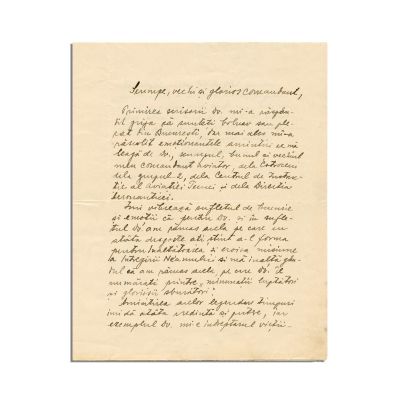 Scumpe, vechi și glorios comandant,
Primirea scrisorii Dv. mi-a risipit
grija că sunteți bolnav sau ple-
cat din București, dar mai ales mi-a
răscolit emoționantele amintiri ce mă
leagă de Dv, scumpul, bunul și vechiul
meu comandant aviator, dela Cotroceni
dela grupul 2, dela Centrul de Instruc-
ție al Aviației Tecuci și dela Direcția
Aeronauticei.
Îmi vibrează sufletul de bucurie
și emoții că pentru Dv. și în sufle-
tul Dv. am rămas acela pe care cu
atâta dragoste ați știut a-l forma
pentru înălțătoarea și eroica misiune
a întregirii Neamului și mă înalță gân-
dul că am rămas acela, pe care Dv. îl
numărați printre, minunații luptători
și glorioșii sburători."
Amintirea acelor legendare timpuri
îmi dă atâta credință și putere, iar
exemplul Dv. mi-e îndreptarul vieții.